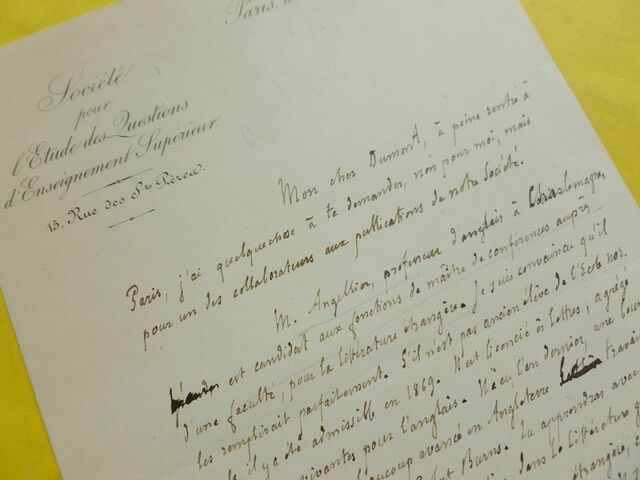 Paris, le
Société
pour
l'Etude des Questions
d'Enseignement Supérieur.
15, Rue des Sts Pères.
Mon cher Dumont, à peine rentré à
Paris, j'ai quelque chose à te demander, non pour moi, mais
pour un des collaborateurs aux publications de notre Société.
M. Angellier, professeur d'anglais à Charlemagne,
est candidat aux fonctions de maître de conférences auprès
d'une faculté, pour la littérature étrangère. Je suis convaincu qu'il
les remplirait parfaitement. S'il n'est pas ancien élève de l'Ecole nor.
il y a été admissible en 1869. Il est licencié ès lettres, agrégé
vivantes pour l'anglais. Il a eu, l'an dernier, une bour
beaucoup avancé en Angleterre travau
Burns. Tu apprendras avec
dans la littérature
étrangère,